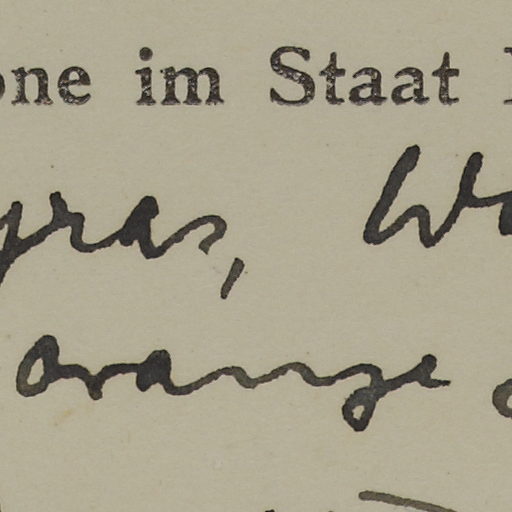 one im Staat
yras, Wo
orange